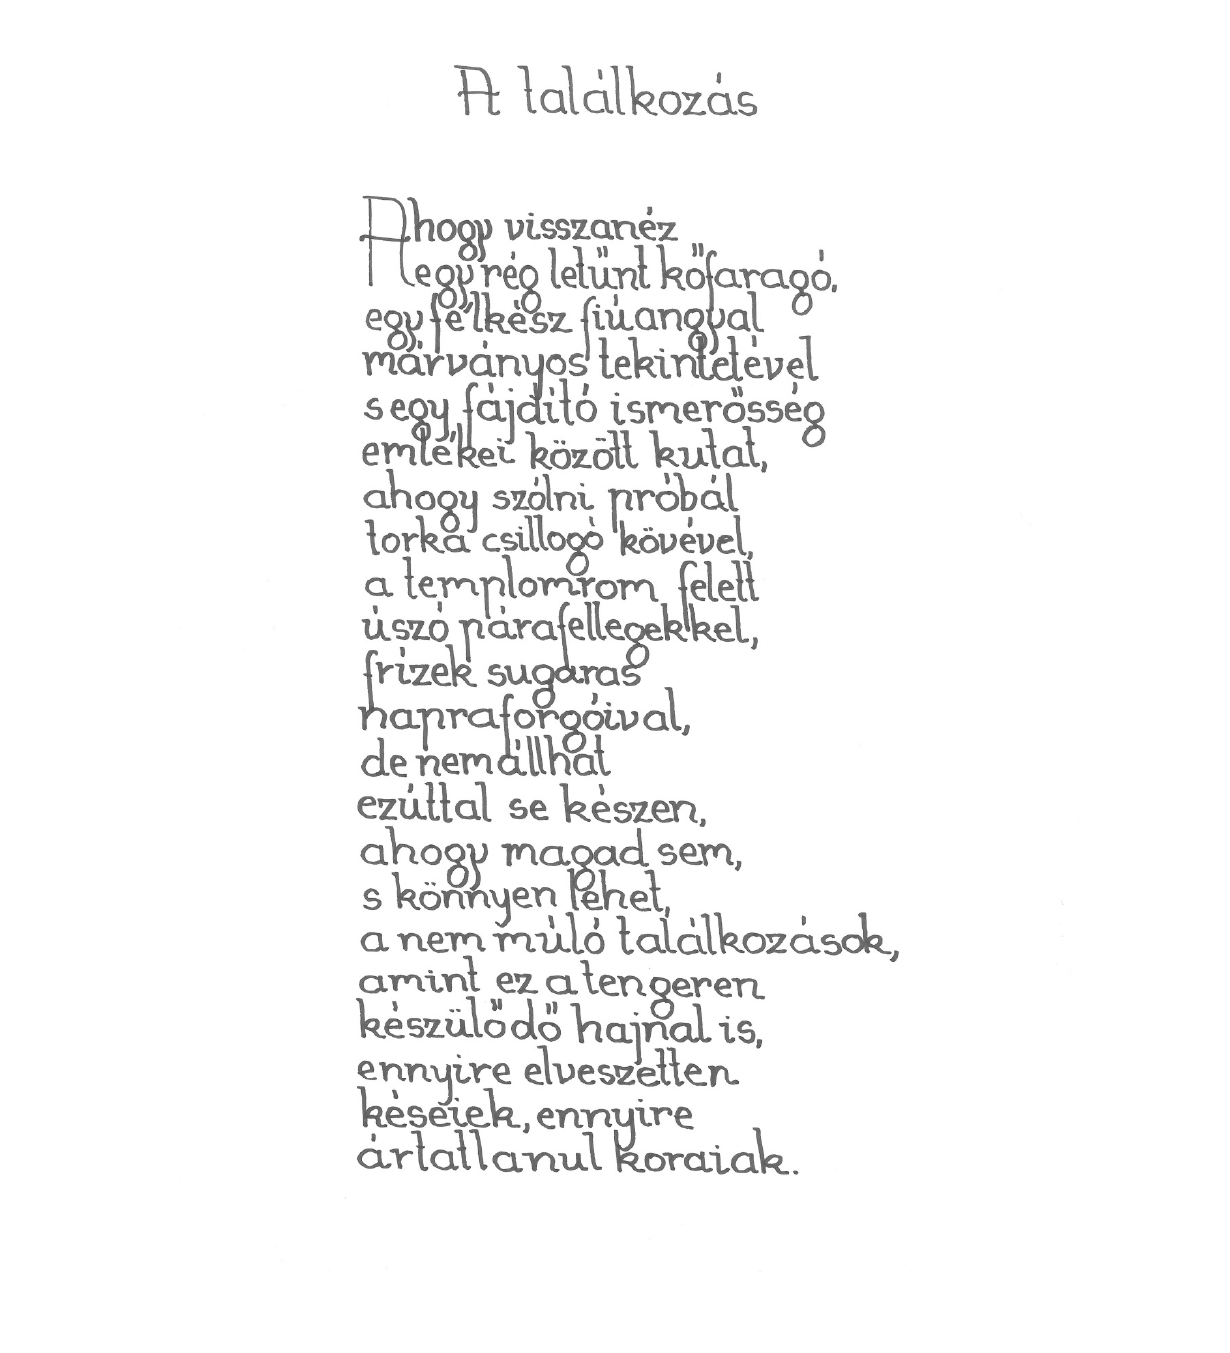 A találkozás
Ahogy visszanéz
egy rég letűnt kőfaragó,
egy félkész fiúangyal
márványos tekintetével
s egy fájdító ismerősség
emlékei között kutat,
ahogy szólni próbál
torka csillogó kövével,
a templomrom felett
úszó párafellegekkel,
frízek sugaras
napraforgóival,
de nem állhat
ezúttal se készen,
ahogy magad sem,
s könnyen lehet,
a nem múló találkozások,
amint ez a tengeren
készülődő hajnal is,
ennyire elveszetten
késeiek, ennyire
ártatlanul koraiak.